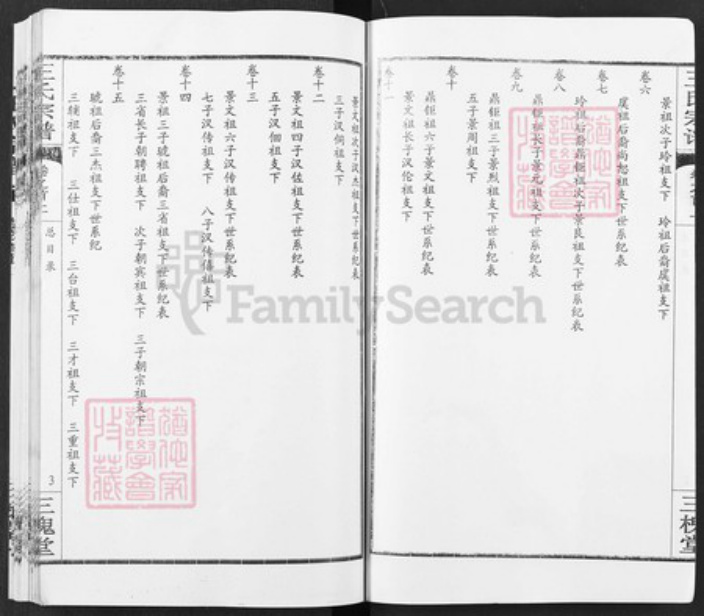 王氏宗谱
三槐堂
景祖次子玲祖支下 玲祖后裔虞祖支下
卷六
虞祖后裔尚恕祖支下世系纪表
卷七
玲祖后裔鼎钜祖次子景良祖支下世系纪表
卷八
鼎钜祖长子景元祖支下世系纪表
卷九
鼎钜祖三子景烈祖支下世系纪表
五子景周祖支下
卷十
鼎钜祖六子景文祖支下世系纪表
景文祖长子汉伦祖支下
卷十一
景文祖次子汉杰祖支下世系纪表
三子汉侗祖支下
卷十二
景文祖四子汉佐祖支下世系纪表
五子汉佃祖支下
卷十三
景文祖六子汉传祖支下世系纪表
七子汉侍祖支下 八子汉僖祖支下
卷十四
景祖三子琥祖后裔三省祖支下世系纪表
三省长子朝聘祖支下 次子朝宾祖支下 三子朝宗祖支下
卷十五
琥祖后裔三杰祖支下世系纪
三辅祖支下 三仕祖支下 三台祖支下 三才祖支下 三重祖支下
王氏宗谱
总目录
3
三槐堂
FamilySearch